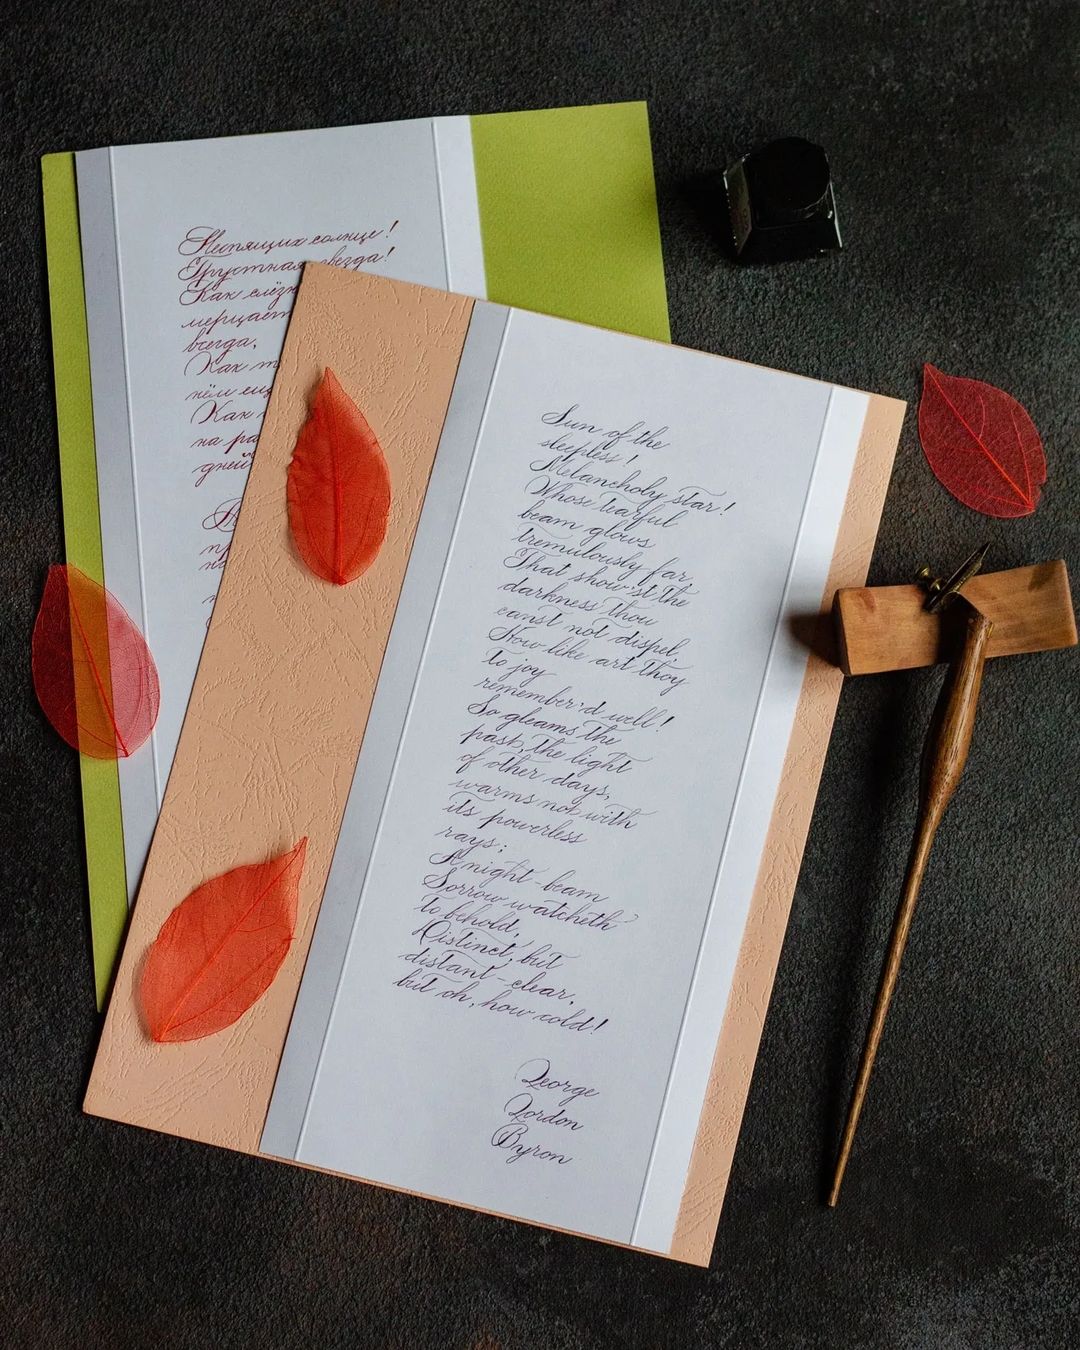 Неспящих солнце!
Грустная звезда!
Как слёзн
мерцает
всегда,
Как т
нём ещ
Как
на ра
дней
пр
на
Sun of the
sleepless!
Melancholy star!
Whose tearful
beam glows
tremulously far,
That show'st the
darkness thou
canst not dispel,
How like art thoy
to joy
remember'd well!
So gleams the
past, the light
of other days,
warms not with
its powerless
rays;
A night-beam
Sorrow watcheth
to behold,
Distinct, but
distant-clear,
but oh, how cold!
George
Gordon
Byron